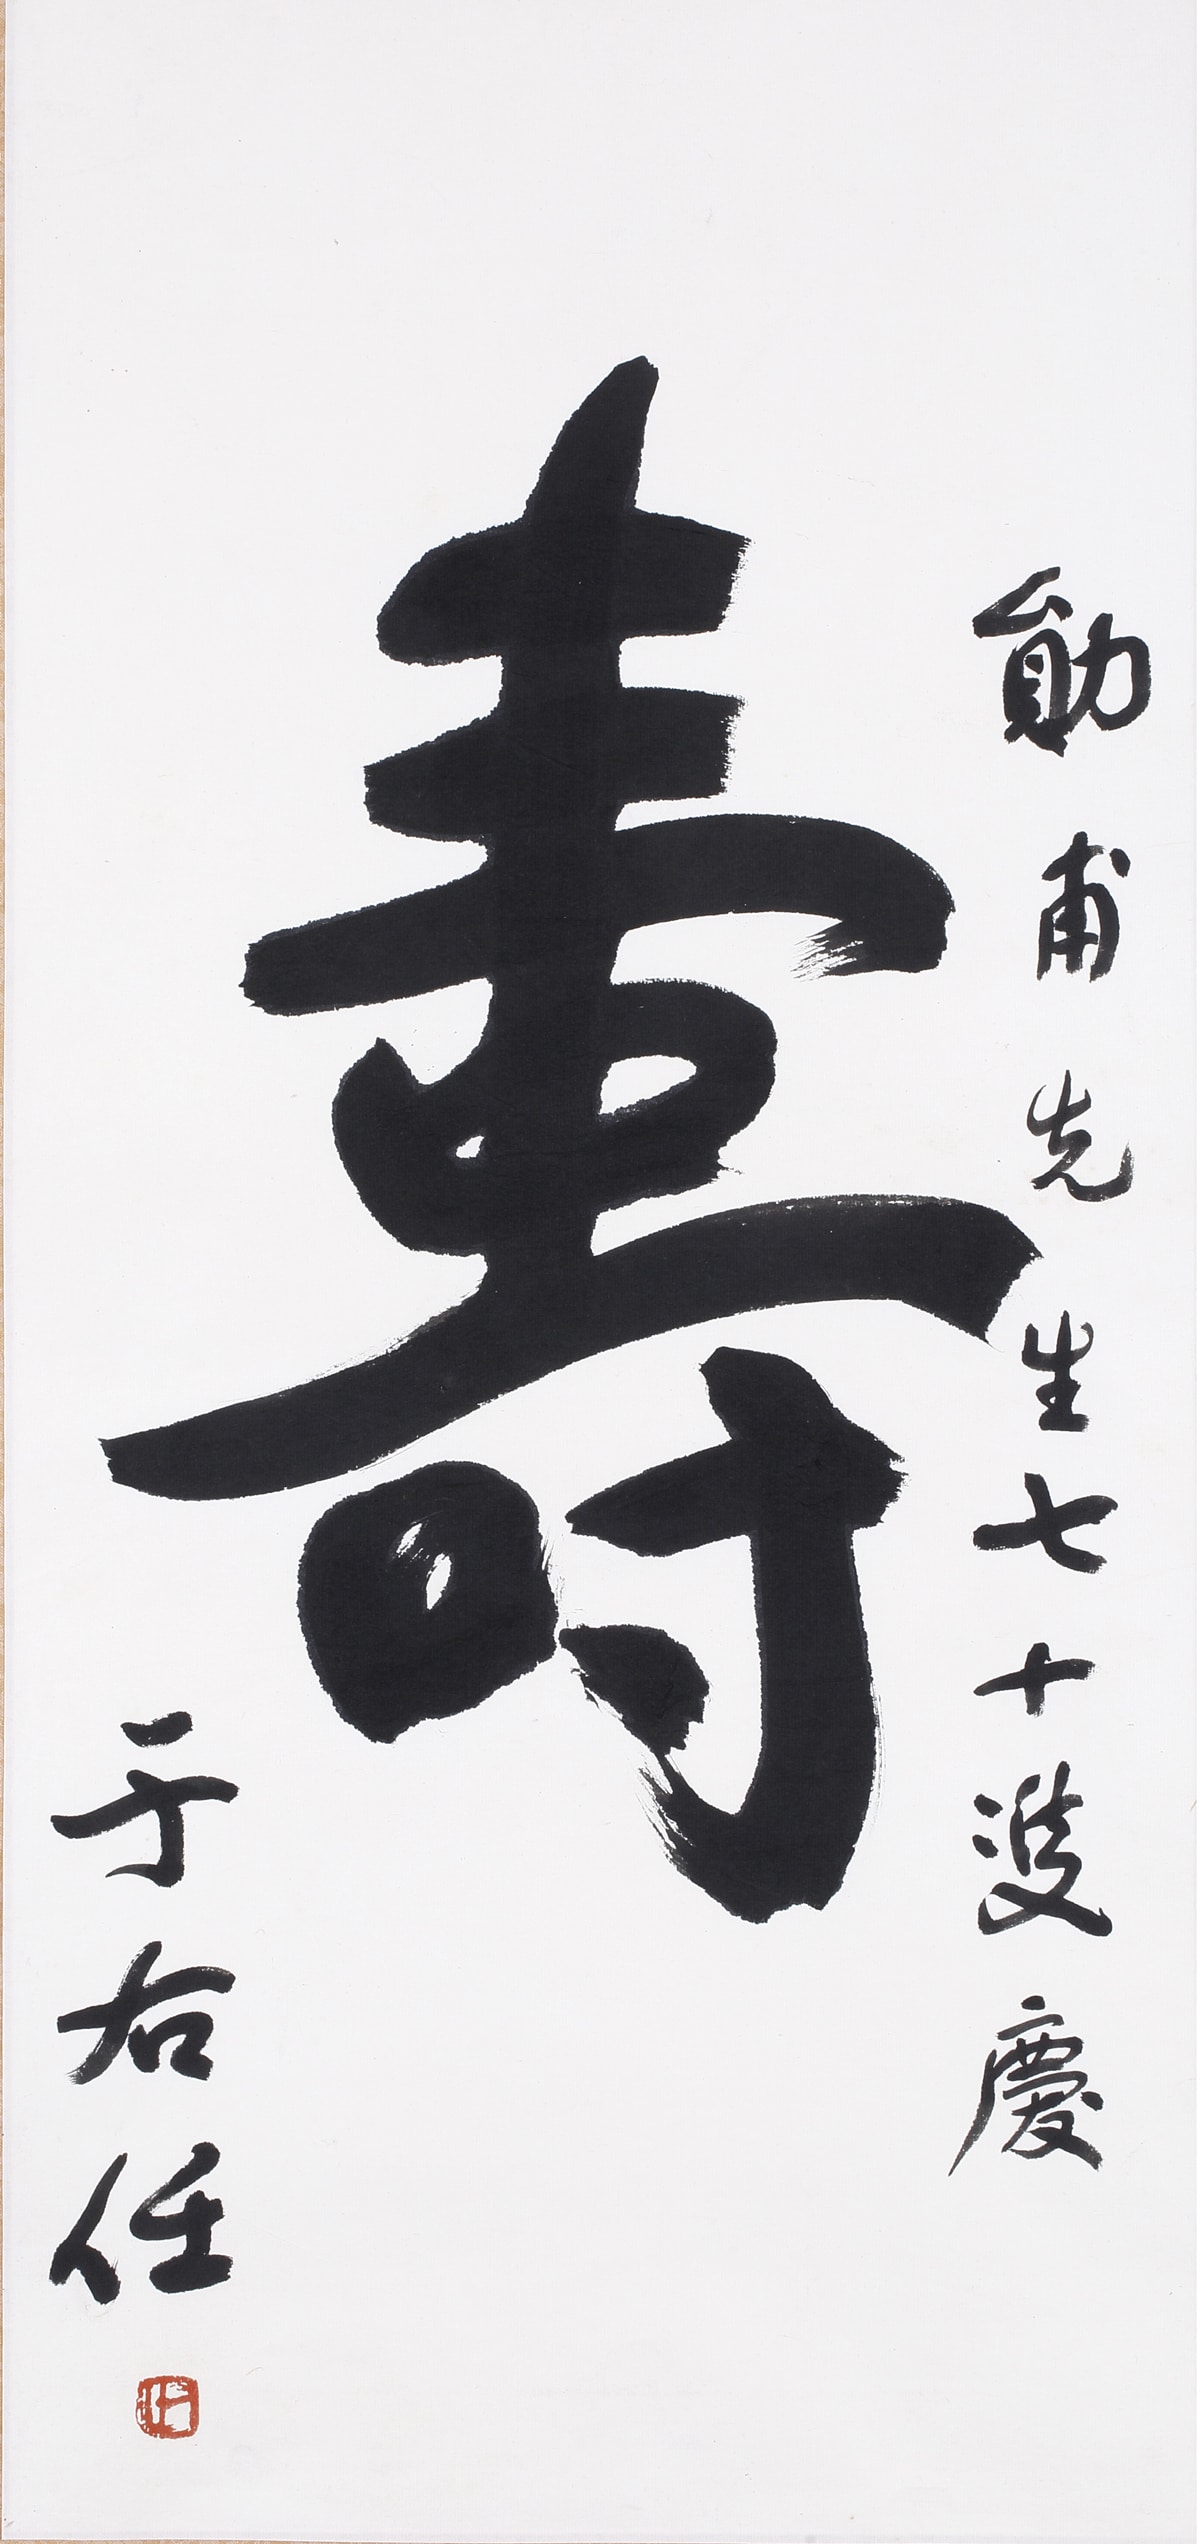 勛甫先生七十雙慶
壽
于右任